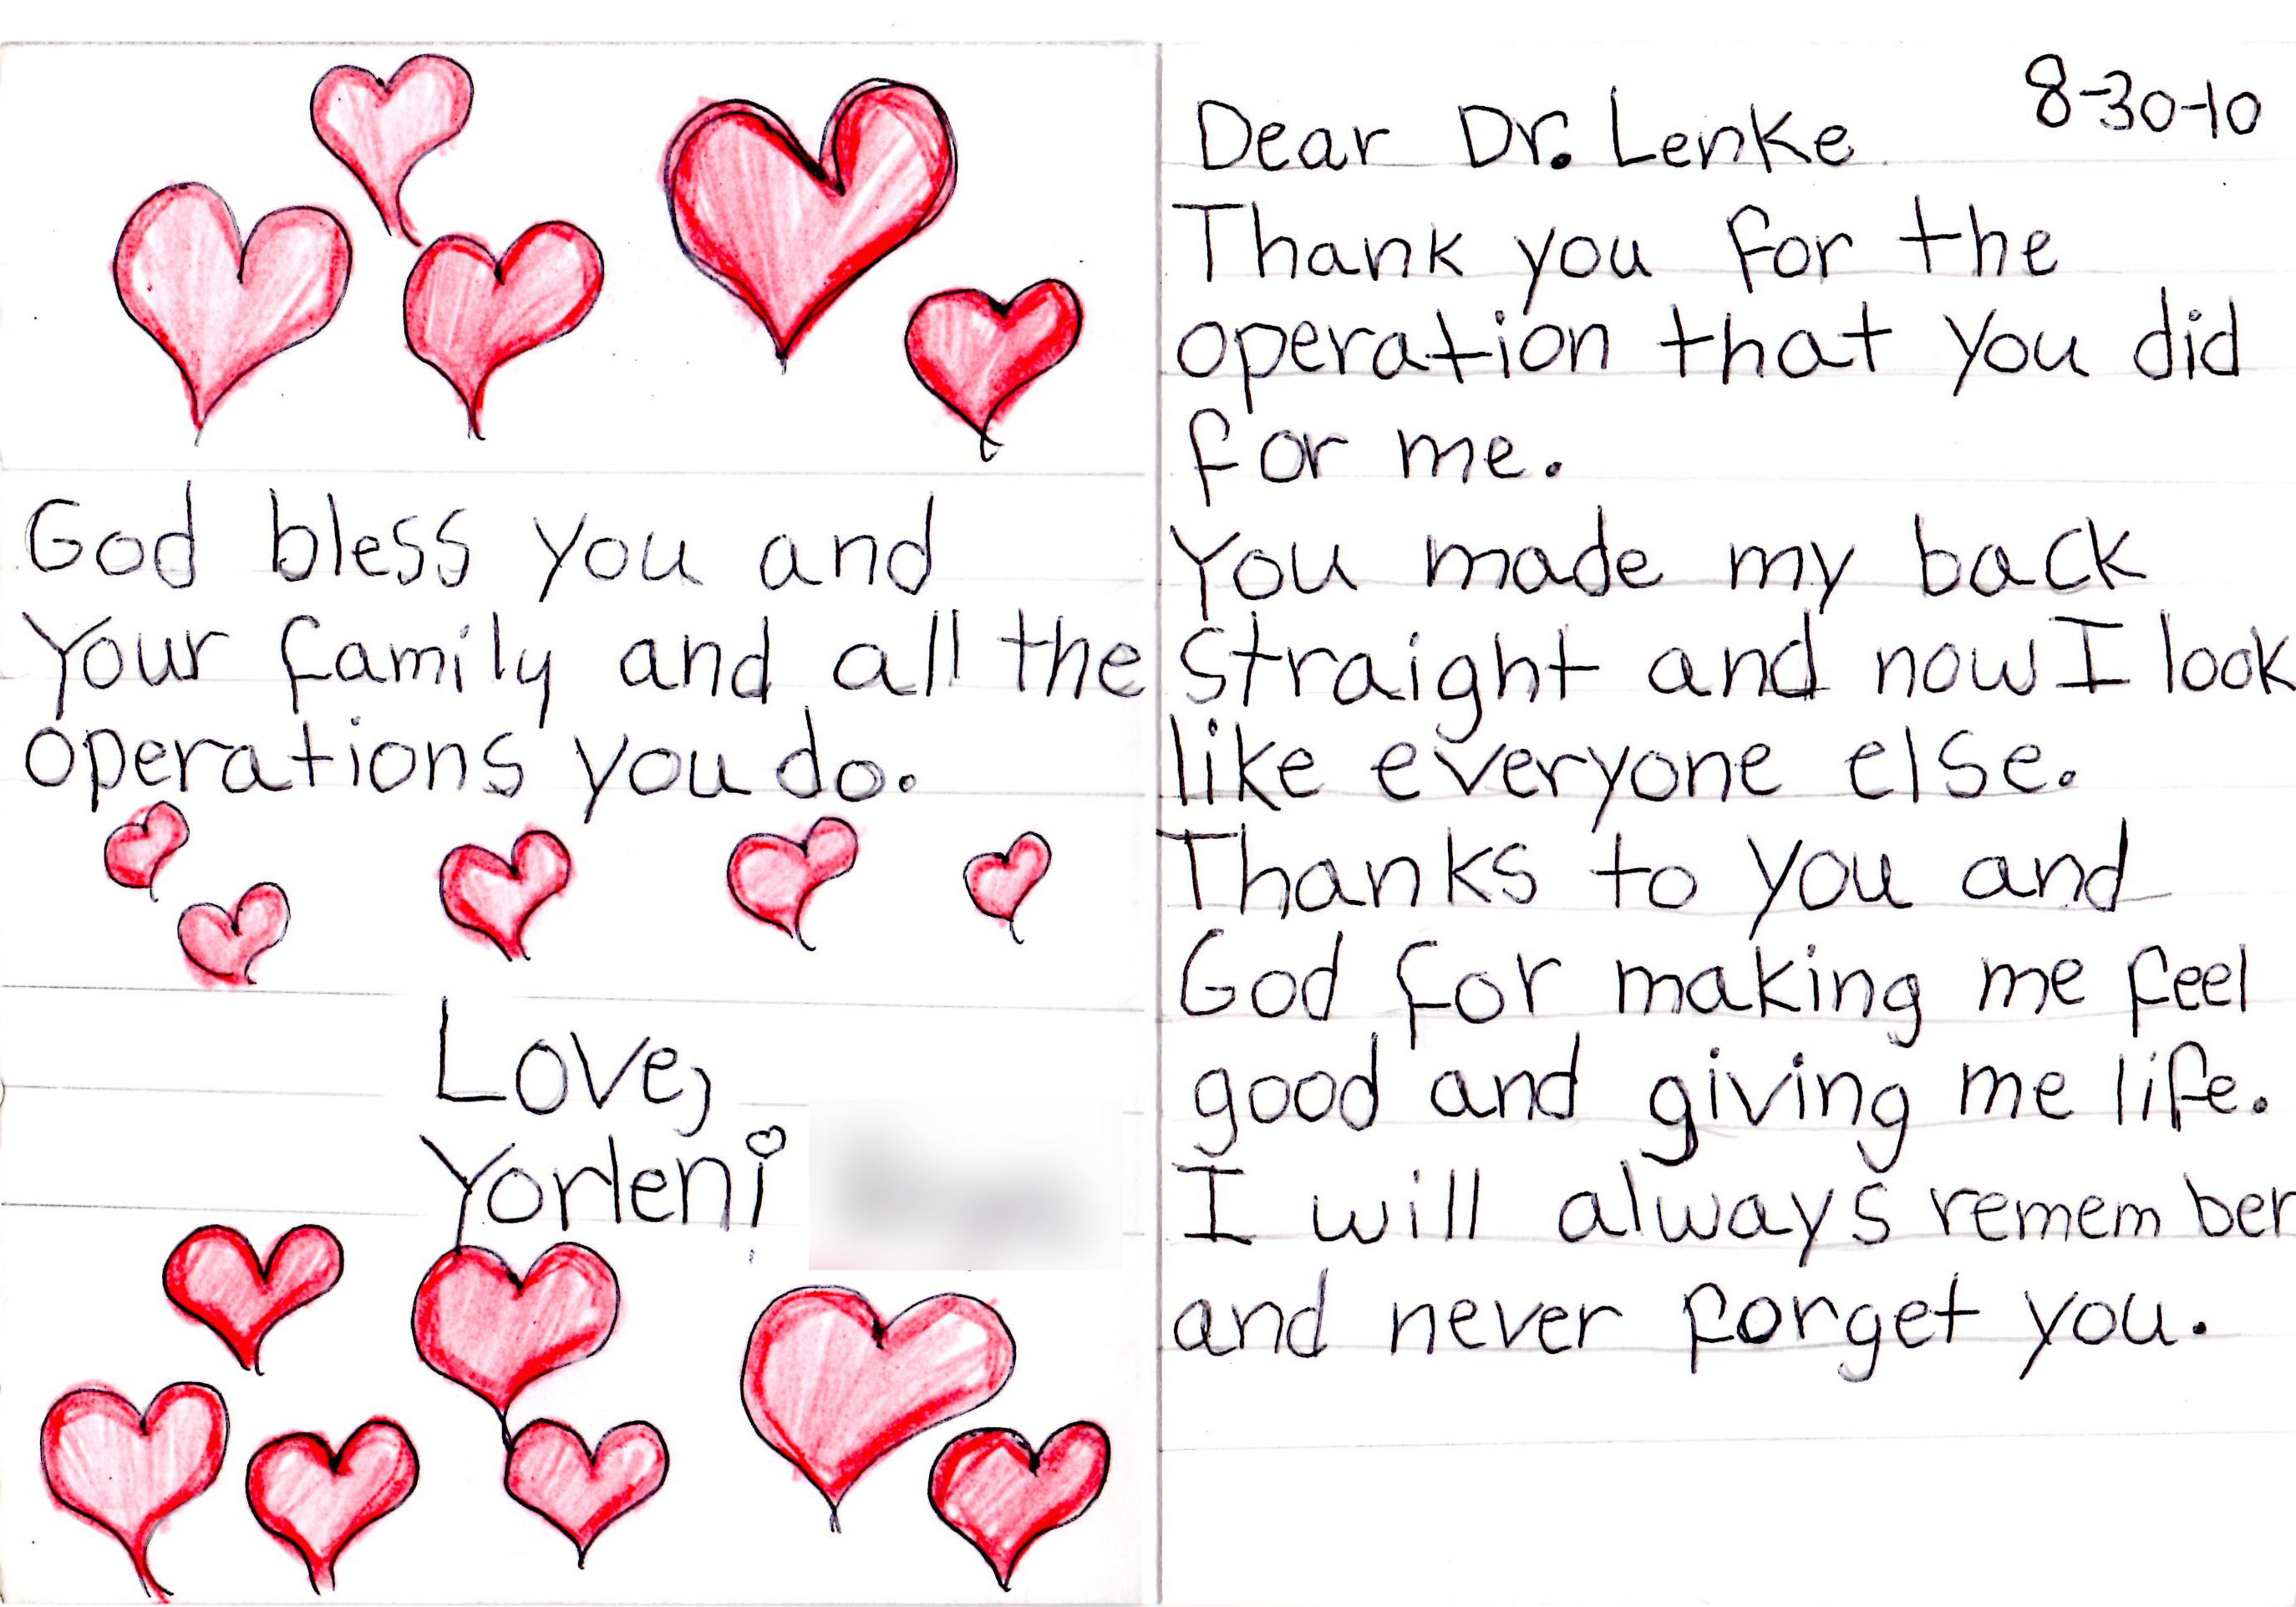 8-30-10
Dear Dr. Lenke
Thank you for the
operation that you did
for me.
You made my back
straight and now I look
like everyone else.
Thanks to you and
God for making me feel
good and giving me life.
I will always remember
and never forget you.
God bless you and
Your family and all the
operations you do.
Love,
Yorleni